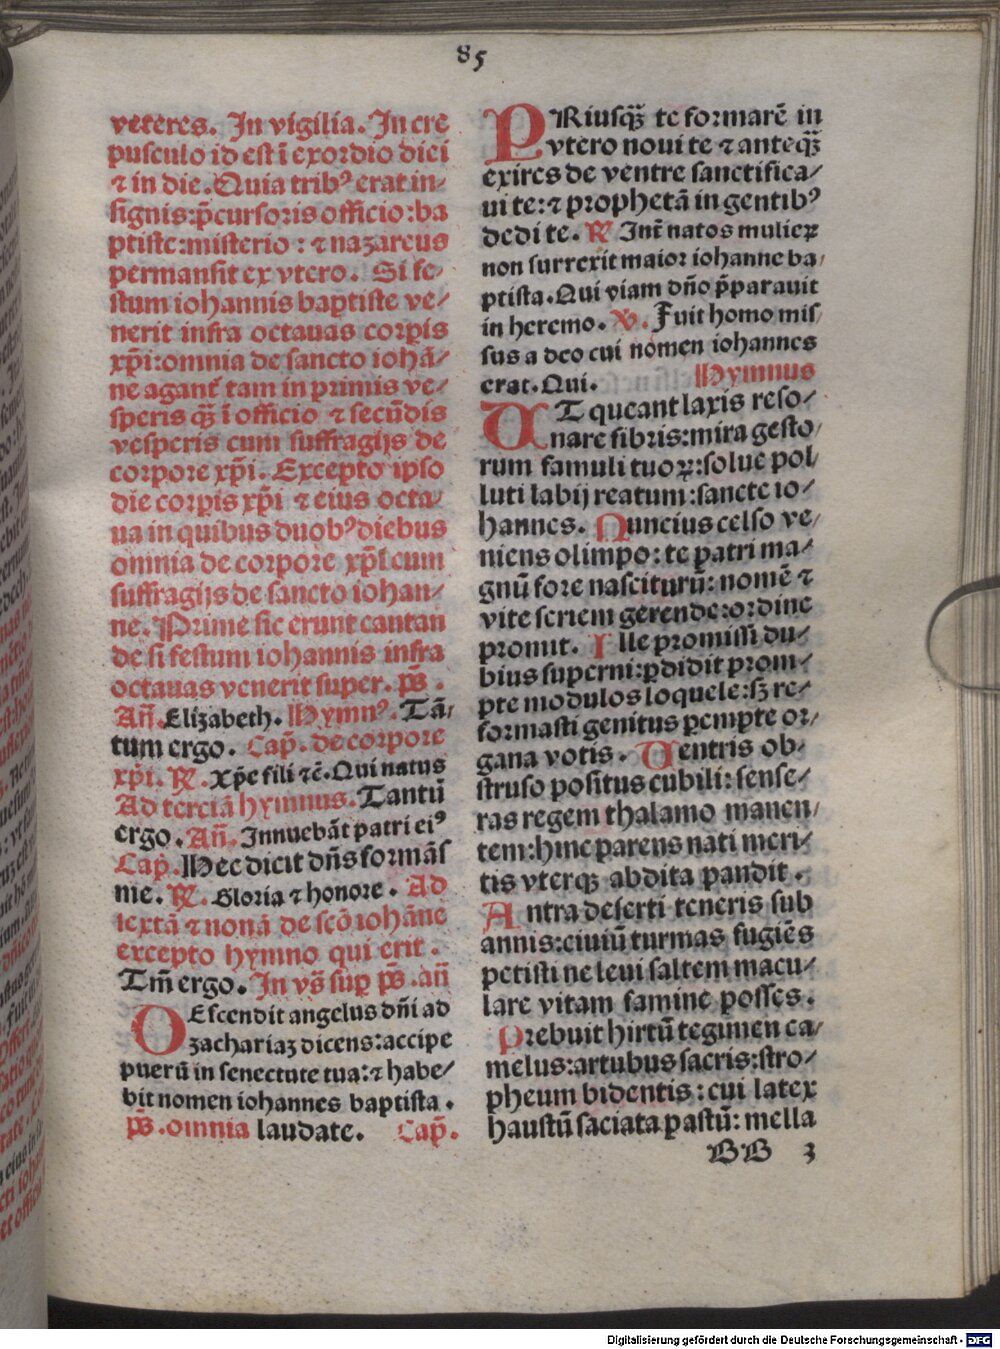 85
veteres. In vigilia. In cre
pusculo id est ī exordio diei
⁊ in die. Quia tribꝰ erat in⸗
signis: p̄cursoris officio: ba
ptiste: misterio: ⁊ nazareus
permansit ex vtero. Si fe⸗
stum iohannis baptiste ve⸗
nerit infra octauas corpīs
xp̄i: omnia de sancto iohā⸗
ne agant᷑ tam in primis ve⸗
speris qꝫ̄ ī officio ⁊ secūdis
vesperis cum suffragijs de
corpore xp̄i. Excepto ipso
die corpīs xp̄i ⁊ eius octa⸗
ua in quibus duobꝰ diebus
omnia de corpore xp̄i cum
suffragijs de sancto iohan⸗
ne. Prime sic erunt cantan
de si festum iohannis infra
octauas venerit super. ps̄.
An̄. Elizabeth. Hymnꝰ. Tā⸗
tum ergo. Cap̄. de corpore
xp̄i. ℟. Xp̄e fili ⁊c̄. Qui natus
Ad terciā hymnus. Tantū
ergo. An̄. Innuebāt patri eiꝰ
Cap̄. Hec dicit dn̄s formās
me. ℟. Gloria ⁊ honore. Ad
sextā ⁊ nonā de sc̄o iohāne
excepto hymno qui erit.
Tm̄ ergo. In vs̄ suꝑ ps̄. an̄
DEscendit angelus dn̄i ad
zachariaz dicens: accipe
puerū in senectute tua: ⁊ habe⸗
bit nomen iohannes baptista.
ps̄. omnia laudate. Cap̄.
PRiusqꝫ̄ te formarē in
vtero noui te ⁊ anteqꝫ̄
exires de ventre sanctifica⸗
ui te: ⁊ prophetā in gentibꝰ
dedi te. ℟ Int̄ natos mulieꝝ
non surrexit maior iohanne ba⸗
ptista. Qui viam dn̄o p̄parauit
in heremo. ℣. Fuit homo mis
sus a deo cui nomen iohannes
erat. Qui. Hymnus
UT queant laxis reso⸗
nare fibris: mira gesto⸗
rum famuli tuoꝝ: solue pol⸗
luti labij reatum: sancte io⸗
hannes. Nuncius celso ve⸗
niens olimpo: te patri ma⸗
gnū fore nasciturū: nomē ⁊
vite seriem gerende: ordine
promit. Ille promissi du⸗
bius superni: ꝑdidit prom⸗
pte modulos loquele: sꝫ re⸗
formasti genitus ꝑempte or⸗
gana votis. Uentris ob⸗
struso positus cubili: sense⸗
ras regem thalamo manen⸗
tem: hinc parens nati meri⸗
tis vterqꝫ abdita pandit.
Antra deserti teneris sub
annis: ciuiū turmas fugiēs
petisti ne leui saltem macu⸗
lare vitam famine posses.
Prebuit hirtū tegimen ca⸗
melus: artubus sacris: stro⸗
pheum bidentis: cui latex
haustū saciata pastū: mella
BB 3
Digitalisierung gefördert durch die Deutsche Forschungsgemeinschaft - DFG